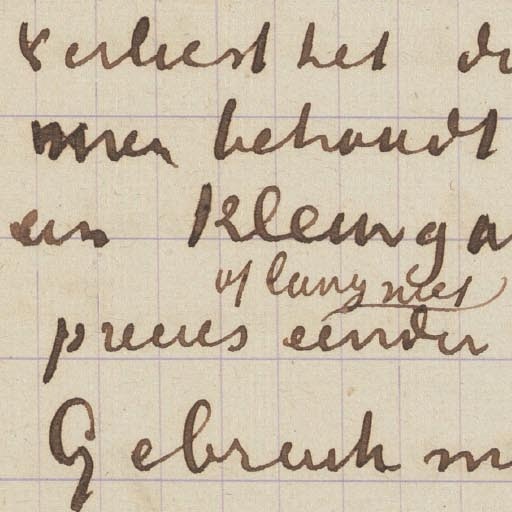 verliest het di
men behoudt
een Kleurga
of lang niet
precies eender
Gebruik m